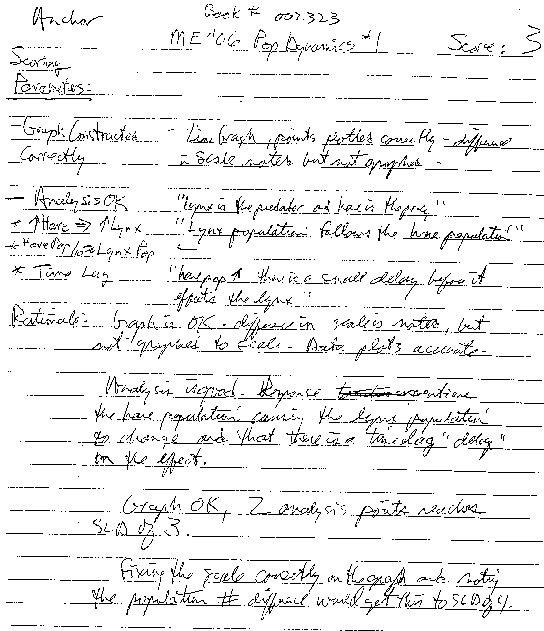 Anchor Book # 007323
ME '06 Pop Dynamics #1 Score: 3
Scoring
Parameters:
- Graph Constructed - Line Graph, points plotted correctly - difference
Correctly in scale notes but not graphed -
- Analysis OK "Lynx is the predator and hare is the prey"
* ↑Hare ⇒ ↑Lynx "Lynx population follows the hare population"
* Hare Pop Lynx Pop
* Time Lag "hare pop ↑ there is a small delay before it
effects the lynx"
Rationale: Graph is OK - difference in scale is notes, but
not graphed to scale - Data plots accurate -
Analysis is good. Response
the hare population causing the lynx population
to change and that there is a time lag "delay"
on the effect.
Graph OK, 2 analysis points reaches
SCD of 3.
Fixing the scale correctly on the graph and noting
the population # would get this to SCD of 4.